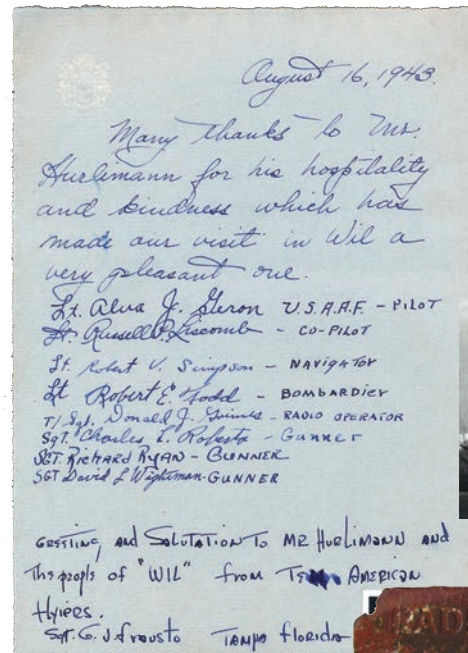 August 16, 1943.
Many thanks to Mr.
Hurlimann for his hospitality
and kindness which has
made our visit in Wil a
very pleasant one.
Lt. Alva J. Geron U.S.A.A.F. - PILOT
Lt. Russell P. Liscomb - CO-PILOT
Lt. Robert V. Simpson - NAVIGATOR
Lt Robert E. Todd - BOMBARDIER
T/Sgt. Donald J. - RADIO OPERATOR
Sgt. Charles L. Roberts - Gunner
SGT. Richard RYAN - GUNNER
SGT David L Wightman - GUNNER
GREETING AND SALUTATION TO MR HURLIMANN AND
The people of "WIL" from AMERICAN
Flyiers.
Sgt. G. J. Frausto TAMPA Florida